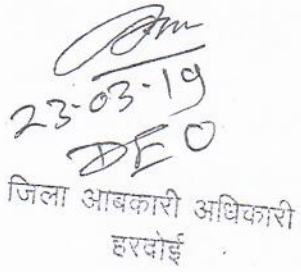 23-03-19
DEO
जिला आबकारी अधिकारी
हरदोई